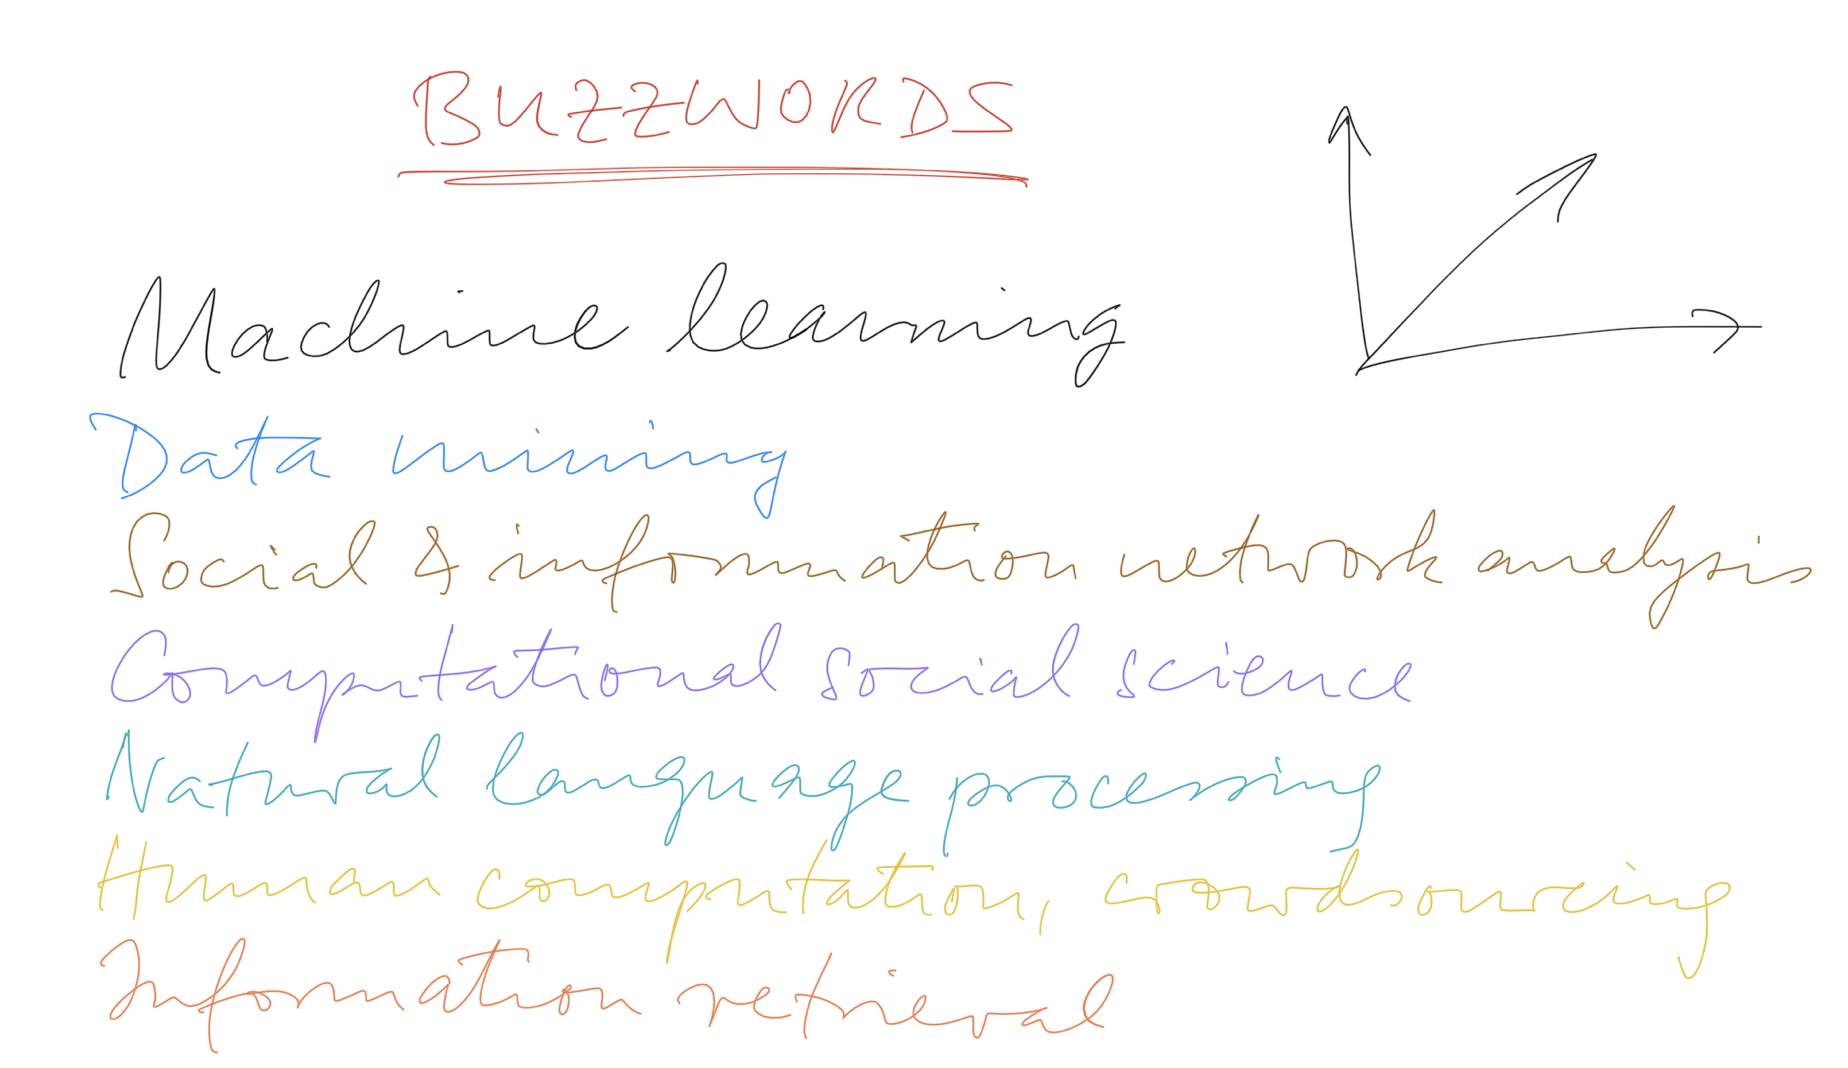 BUZZWORDS
Machine learning
Data mining
Social & information network analysis
Computational social science
Natural language processing
Human computation, crowdsourcing
Information retrieval